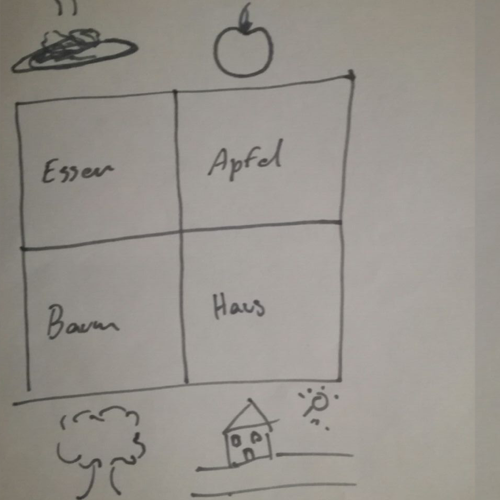 Essen
Apfel
Baum
Haus